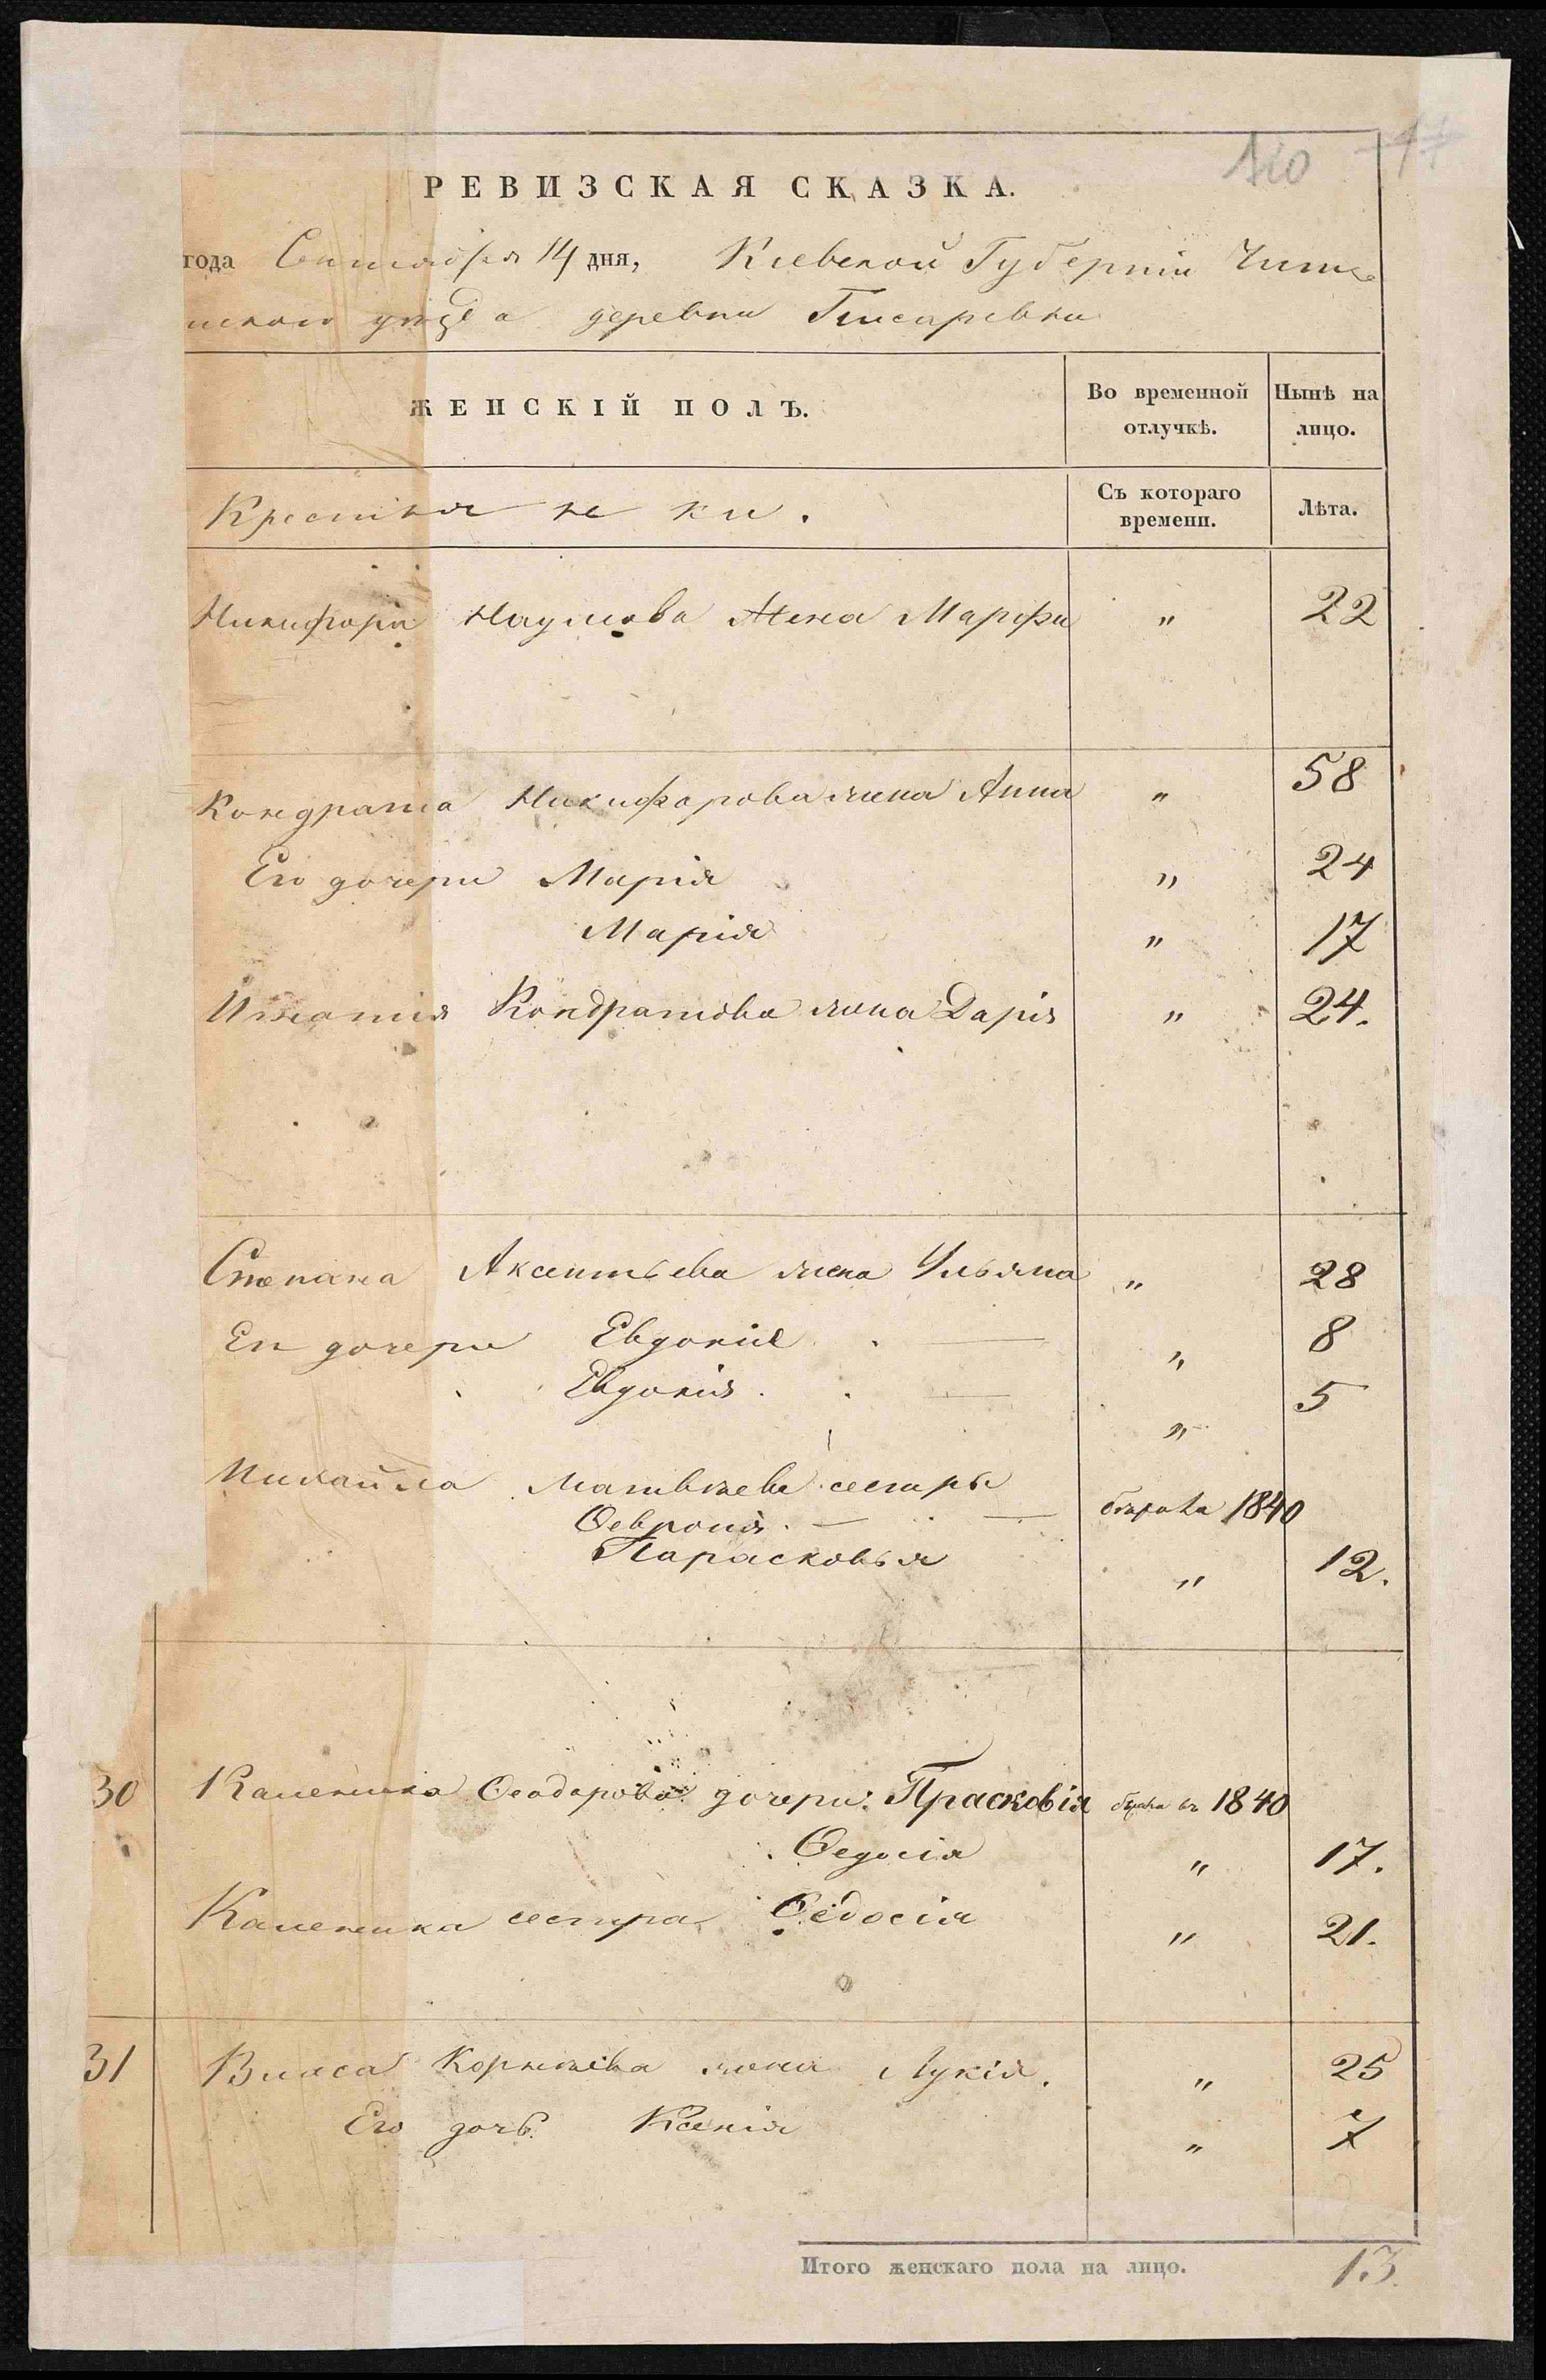 110
РЕВИЗСКАЯ СКАЗКА.
года Сентября 14 дня, Кіевской Губерніи Чиги
нскаго уѣзда деревни Писаревки
ЖЕНСКІЙ ПОЛЪ.
Во временной отлучкѣ.
Нынѣ на лицо.
Крестьянки.
Съ котораго времени.
Лѣта.
Никифора Наумова жена Марфа " 22
Кондрата Никифорова жена Анна " 58
Его дочери Марія " 24
Марія " 17
Игнатія Кондратова жена Дарія " 24.
Степана Аксентьева жена Ульяна " 28
Его дочери Евдокія " 8
Евдокія " 5
Михайла Матвѣева сестры
Февронія 1840
Парасковья " 12.
30 Каленика Ѳеодорова дочери: Прасковія 1840
Ѳедосія " 17.
Каленика сестра Ѳедосія " 21.
31 Власа Корнѣева жена Лукія. " 25
Его дочь Ксенія " 7
Итого женскаго пола на лицо. 13.